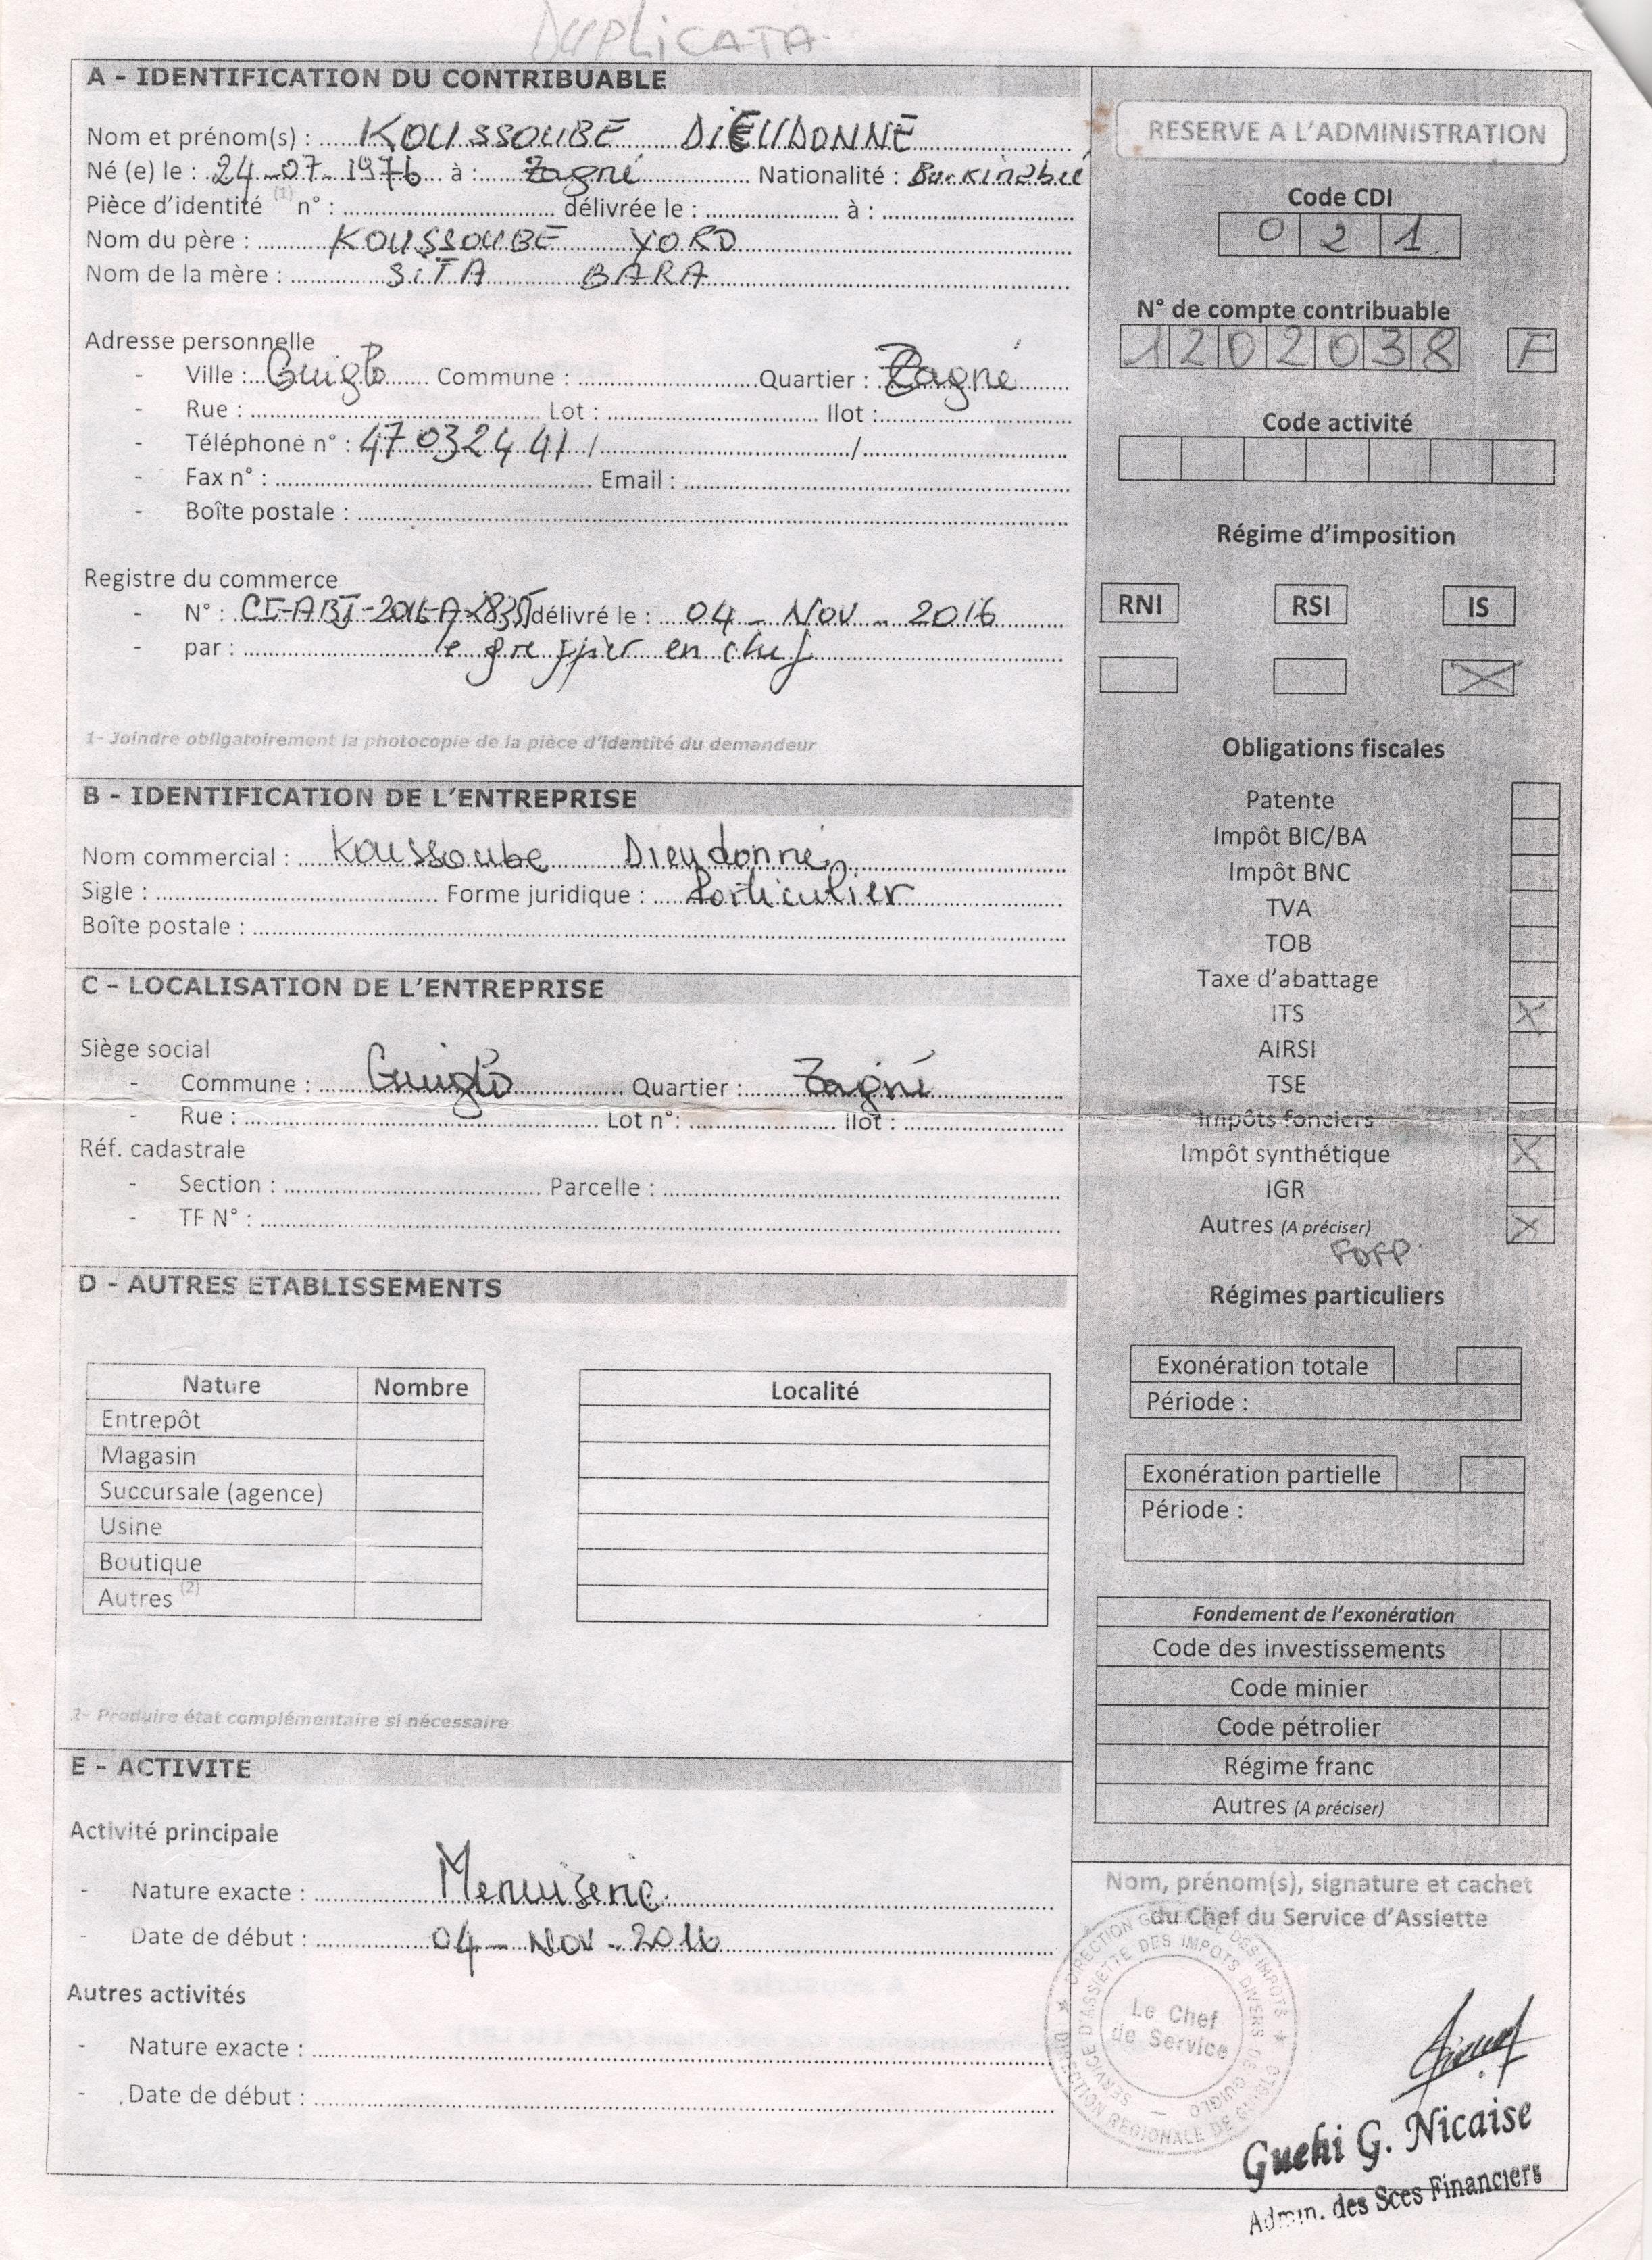 DUPLICATA
A - IDENTIFICATION DU CONTRIBUABLE
Nom et prénom(s) : KOUSSOUBE DIEUDONNE
Né (e) le : 24-07-1976 à : Zagné Nationalité : Burkinabé
Pièce d'identité (1) n° : délivrée le : à :
Nom du père : KOUSSOUBE YORO
Nom de la mère : SITA BARA
Adresse personnelle
- Ville : Guiglo Commune : Quartier : Zagné
- Rue : Lot : Ilot :
- Téléphone n° : 47 03 24 41 / /
- Fax n° : Email :
- Boîte postale :
Registre du commerce
- N° : délivré le : 04 - NOV - 2016
- par : le greffier en chef
1- Joindre obligatoirement la photocopie de la pièce d'identité du demandeur
B - IDENTIFICATION DE L'ENTREPRISE
Nom commercial : Koussoube Dieudonné
Sigle : Forme juridique : Particulier
Boîte postale :
C - LOCALISATION DE L'ENTREPRISE
Siège social
- Commune : Guiglo Quartier : Zagné
- Rue : Lot n°: Ilot :
Réf. cadastrale
- Section : Parcelle :
- TF N° :
D - AUTRES ETABLISSEMENTS
Nature Nombre Localité
Entrepôt
Magasin
Succursale (agence)
Usine
Boutique
Autres (2)
2- Produire état complémentaire si nécessaire
E - ACTIVITE
Activité principale
- Nature exacte : Menuiserie
- Date de début : 04 - NOV - 2016
Autres activités
- Nature exacte :
- Date de début :
RESERVE A L'ADMINISTRATION
Code CDI
0 2 1
N° de compte contribuable
1 2 0 2 0 3 8 F
Code activité
Régime d'imposition
RNI RSI IS
X
Obligations fiscales
Patente
Impôt BIC/BA
Impôt BNC
TVA
TOB
Taxe d'abattage
ITS X
AIRSI
TSE
Impôts fonciers
Impôt synthétique X
IGR
Autres (A préciser) X
FDFP
Régimes particuliers
Exonération totale
Période :
Exonération partielle
Période :
Fondement de l'exonération
Code des investissements
Code minier
Code pétrolier
Régime franc
Autres (A préciser)
Nom, prénom(s), signature et cachet
du Chef du Service d'Assiette
DIRECTION GENERALE DES IMPOTS
DIRECTION REGIONALE DE
SERVICE D'ASSIETTE DES IMPOTS DIVERS DE GUIGLO
Le Chef
de Service
Guehi G. Nicaise
Admin. des Sces Financiers